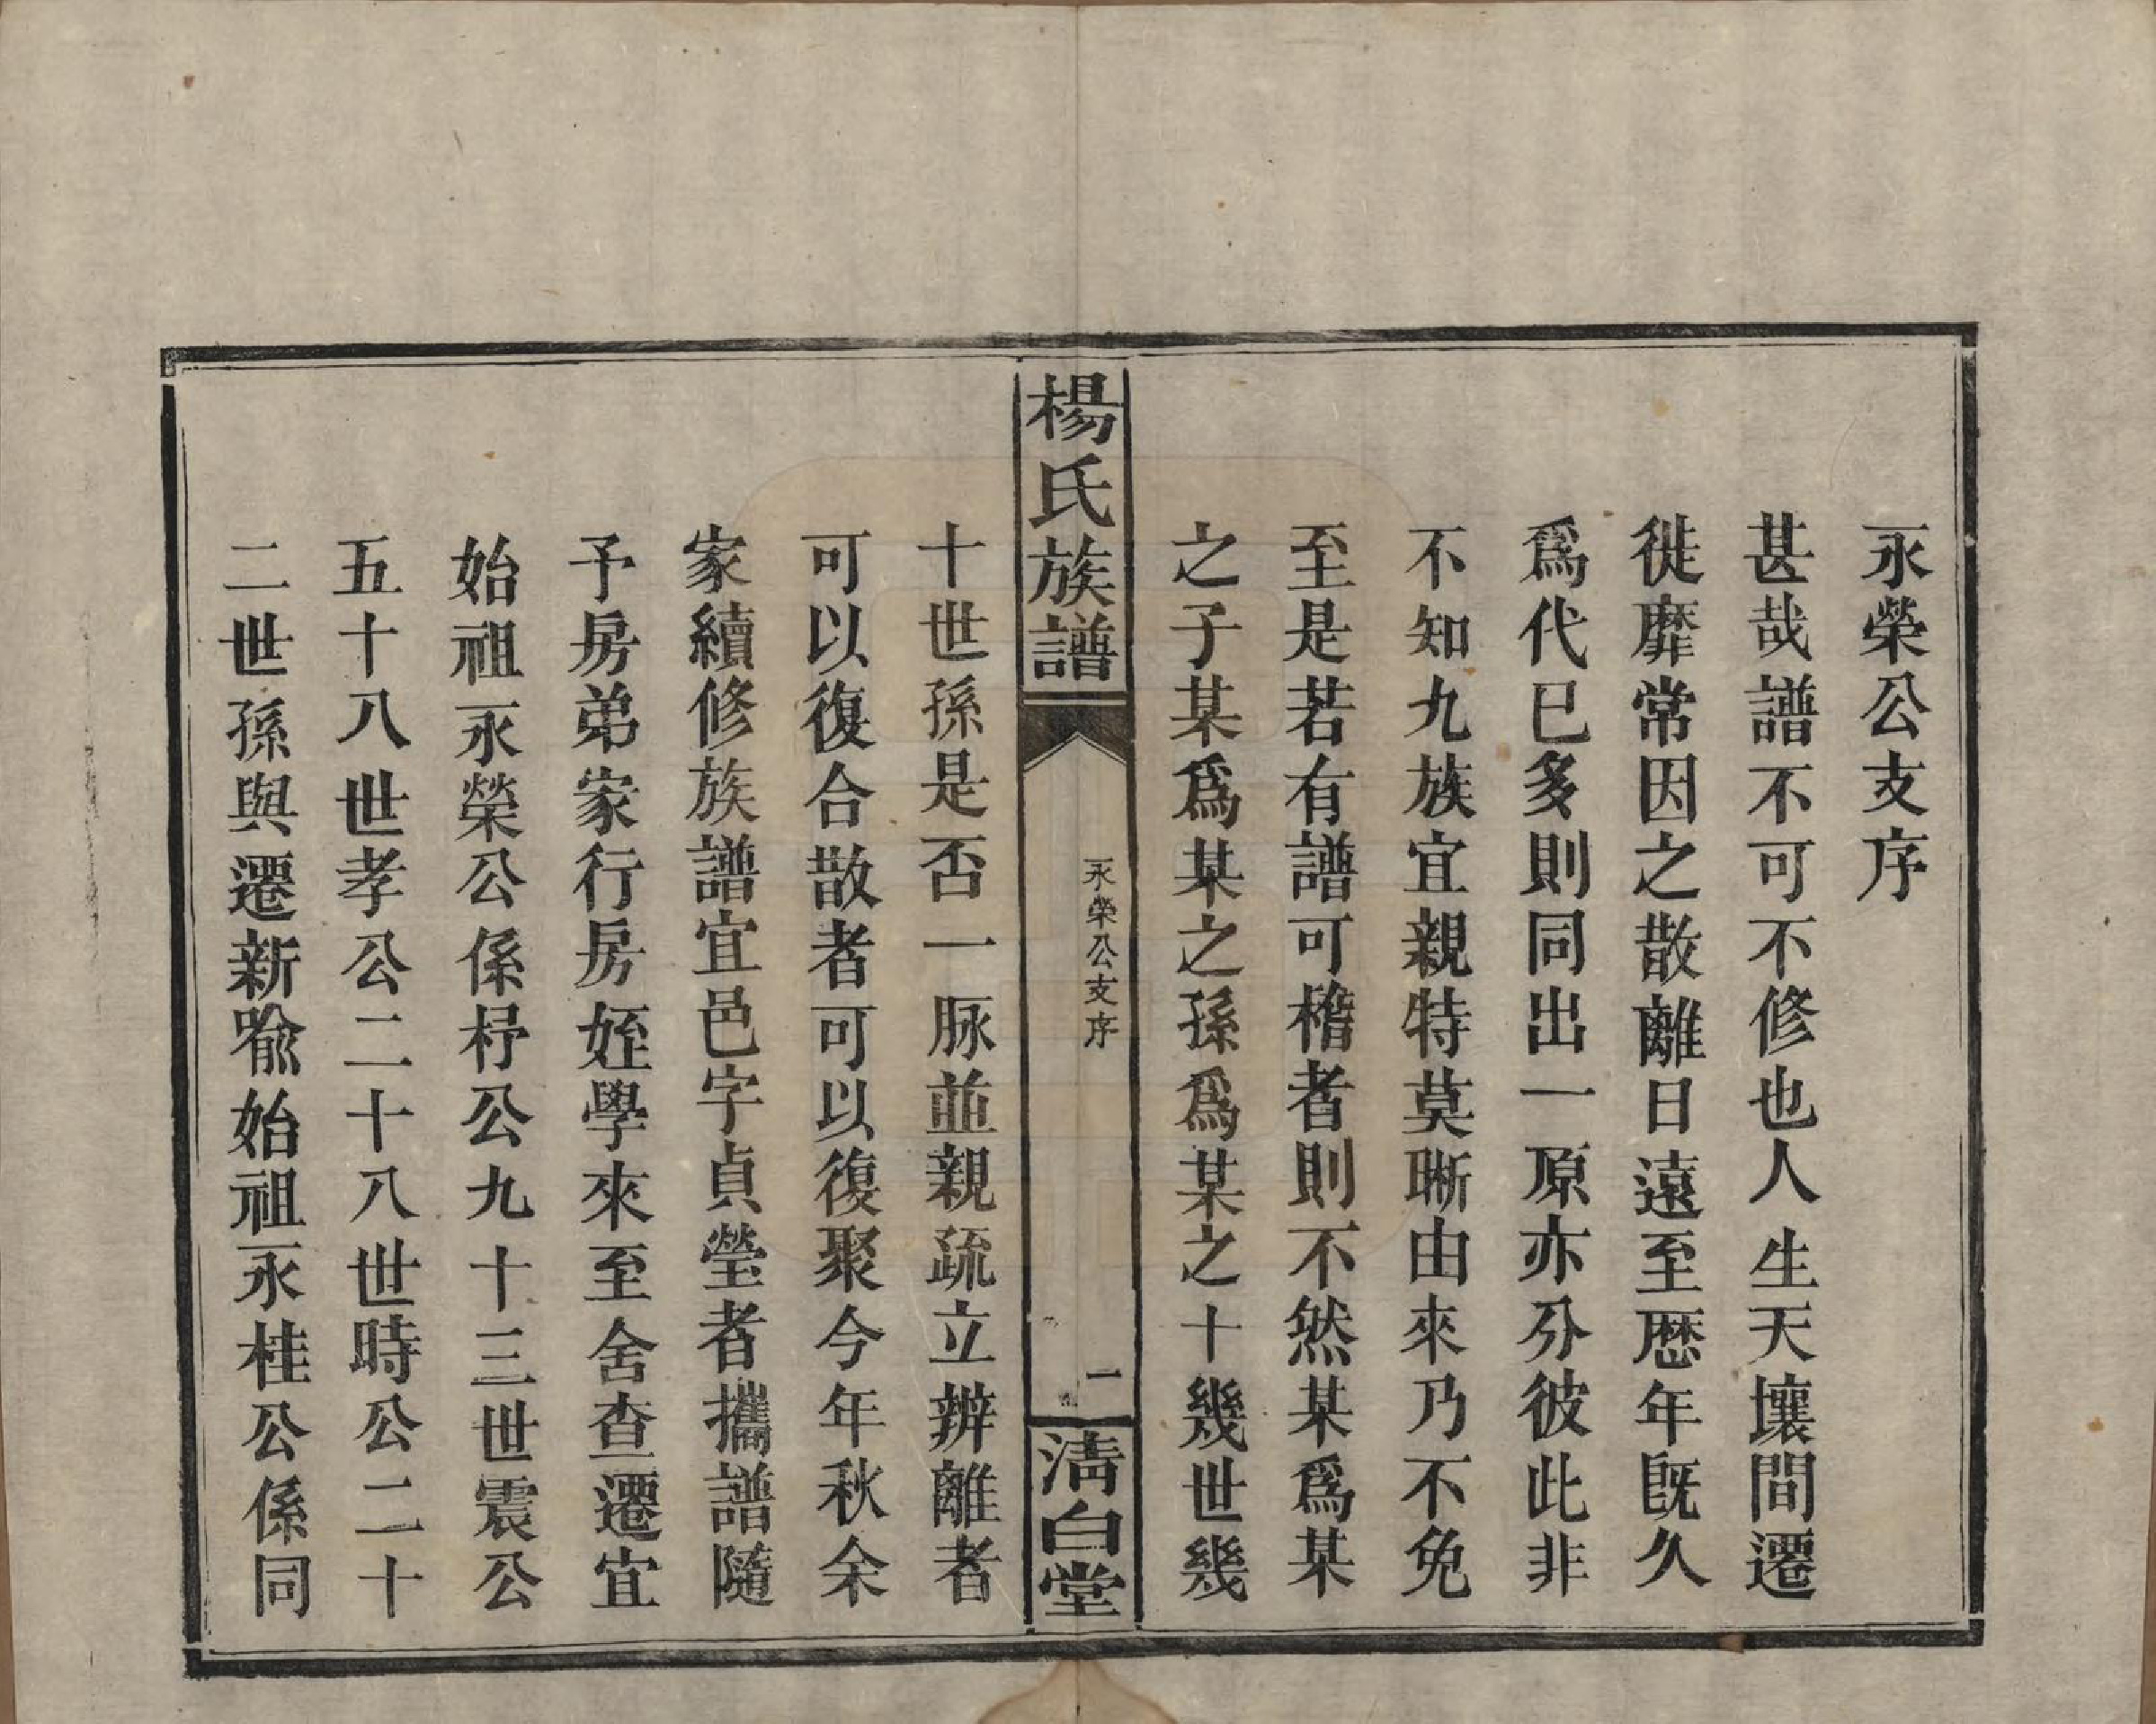 永榮公支序
甚哉譜不可不修也人生天壤間遷
徙靡常因之散離日遠至歷年既久
爲代已多則同出一原亦分彼此非
不知九族宜親特莫晰由來乃不免
至是若有譜可稽者則不然某爲某
之子某爲某之孫爲某之十幾世幾
楊氏族譜
永榮公支序
一
淸白堂
十世孫是否一脉並親疏立辨離者
可以復合散者可以復聚今年秋余
家續修族譜宜邑字貞瑩者攜譜隨
予房弟家行房姪學來至舍查遷宜
始祖永榮公係杼公九十三世震公
五十八世孝公二十八世時公二十
二世孫與遷新喻始祖永桂公係同